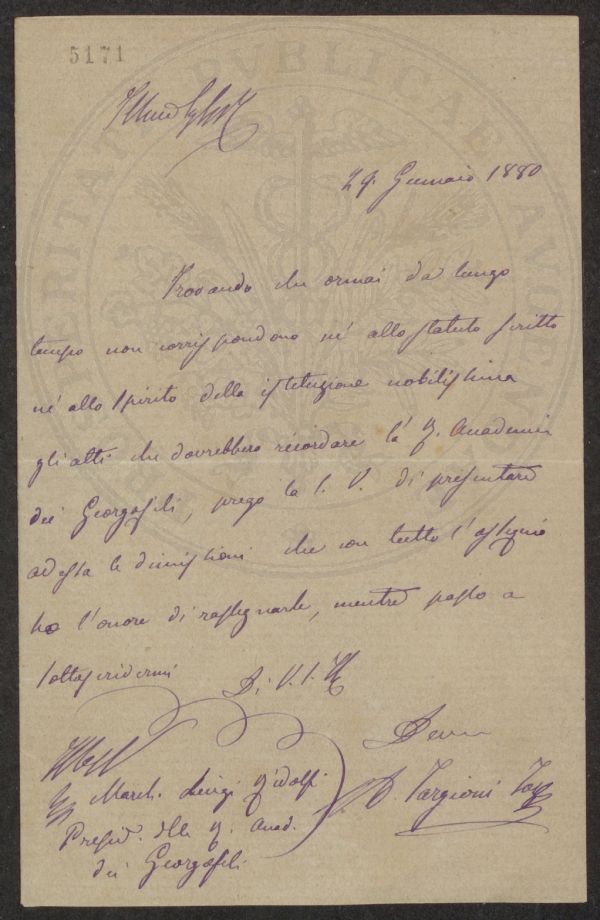 5171
29. Gennaio 1880
Trovando che ormai da lungo
tempo non corrispondono nè allo statuto scritto
nè allo spirito della istituzione nobilissima
gli atti che dovrebbero ricordare la R. Accademia
dei Georgofili, prego la S. V. di presentare
ad essa le dimissioni che con tutto l'ossequio
ho l'onore di rassegnarle, mentre passo a
sottoscrivermi
Di V. S. Ill
Dev
March. Luigi Ridolfi
A. Targioni Tozz
Presid. della R. Accad.
dei Georgofili